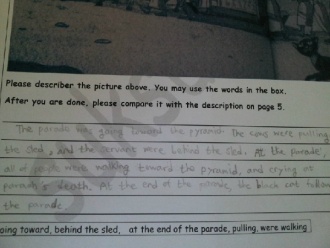 Please describer the picture above. You may use the words in the box.
After you are done, please compare it with the description on page 5.
The parade was going toward the pyramid. The cows were pulling
the sled, and the servants were behind the sled. At the parade,
all of people were walking toward the pyramid, and crying of
pharaoh's death. At the end of the parade, the black cat follow
the parade.
oing toward, behind the sled, at the end of the parade, pulling, were walking